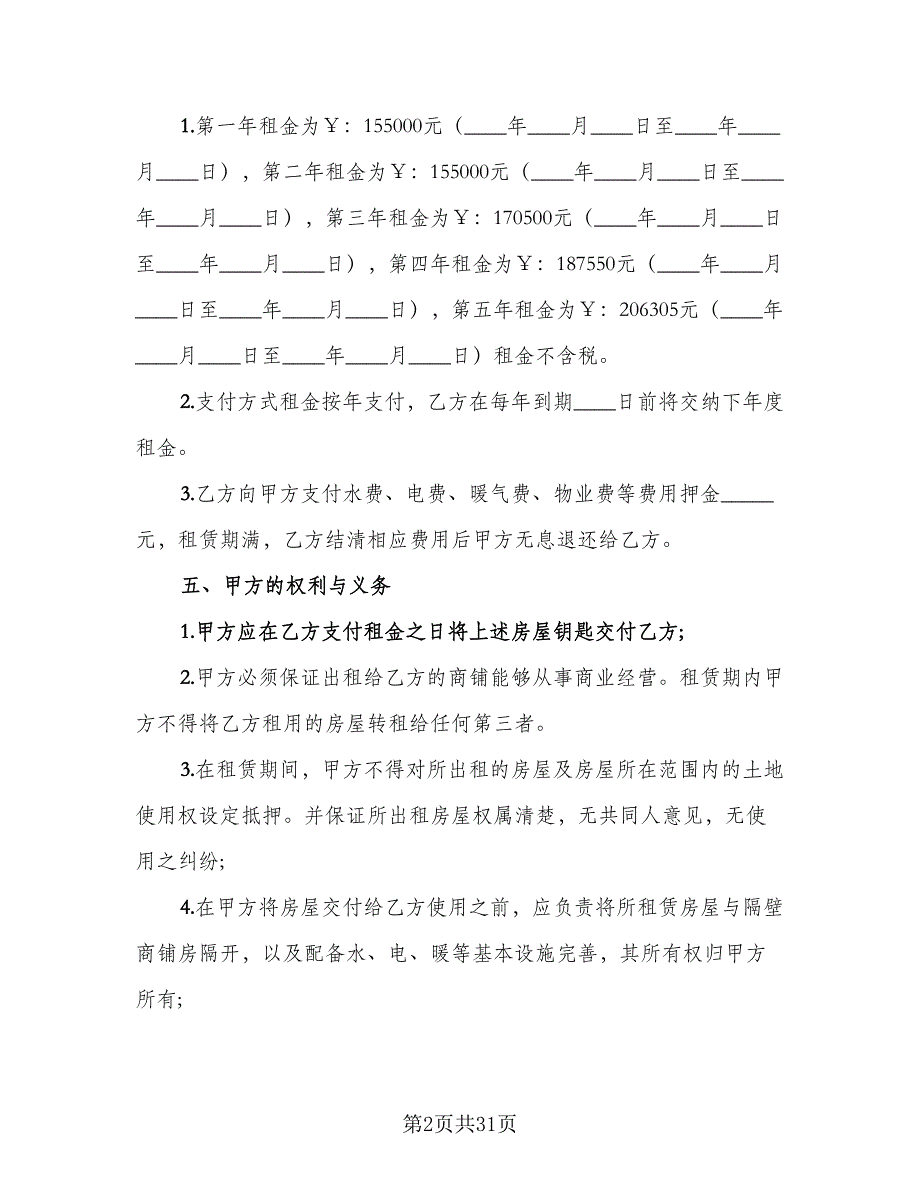 1.第一年租金为￥：155000元（____年____月____日至____年____
月____日），第二年租金为￥：155000元（____年____月____日至____
年____月____日），第三年租金为￥：170500元（____年____月____日
至____年____月____日），第四年租金为￥：187550元（____年____月
____日至____年____月____日），第五年租金为￥：206305元（____年
____月____日至____年____月____日）租金不含税。
2.支付方式租金按年支付，乙方在每年到期____日前将交纳下年度
租金。
3.乙方向甲方支付水费、电费、暖气费、物业费等费用押金_____
元，租赁期满，乙方结清相应费用后甲方无息退还给乙方。
五、甲方的权利与义务
1.甲方应在乙方支付租金之日将上述房屋钥匙交付乙方;
2.甲方必须保证出租给乙方的商铺能够从事商业经营。租赁期内甲
方不得将乙方租用的房屋转租给任何第三者。
3.在租赁期间，甲方不得对所出租的房屋及房屋所在范围内的土地
使用权设定抵押。并保证所出租房屋权属清楚，无共同人意见，无使
用之纠纷;
4.在甲方将房屋交付给乙方使用之前，应负责将所租赁房屋与隔壁
商铺房隔开，以及配备水、电、暖等基本设施完善，其所有权归甲方
所有;
第2页共31页